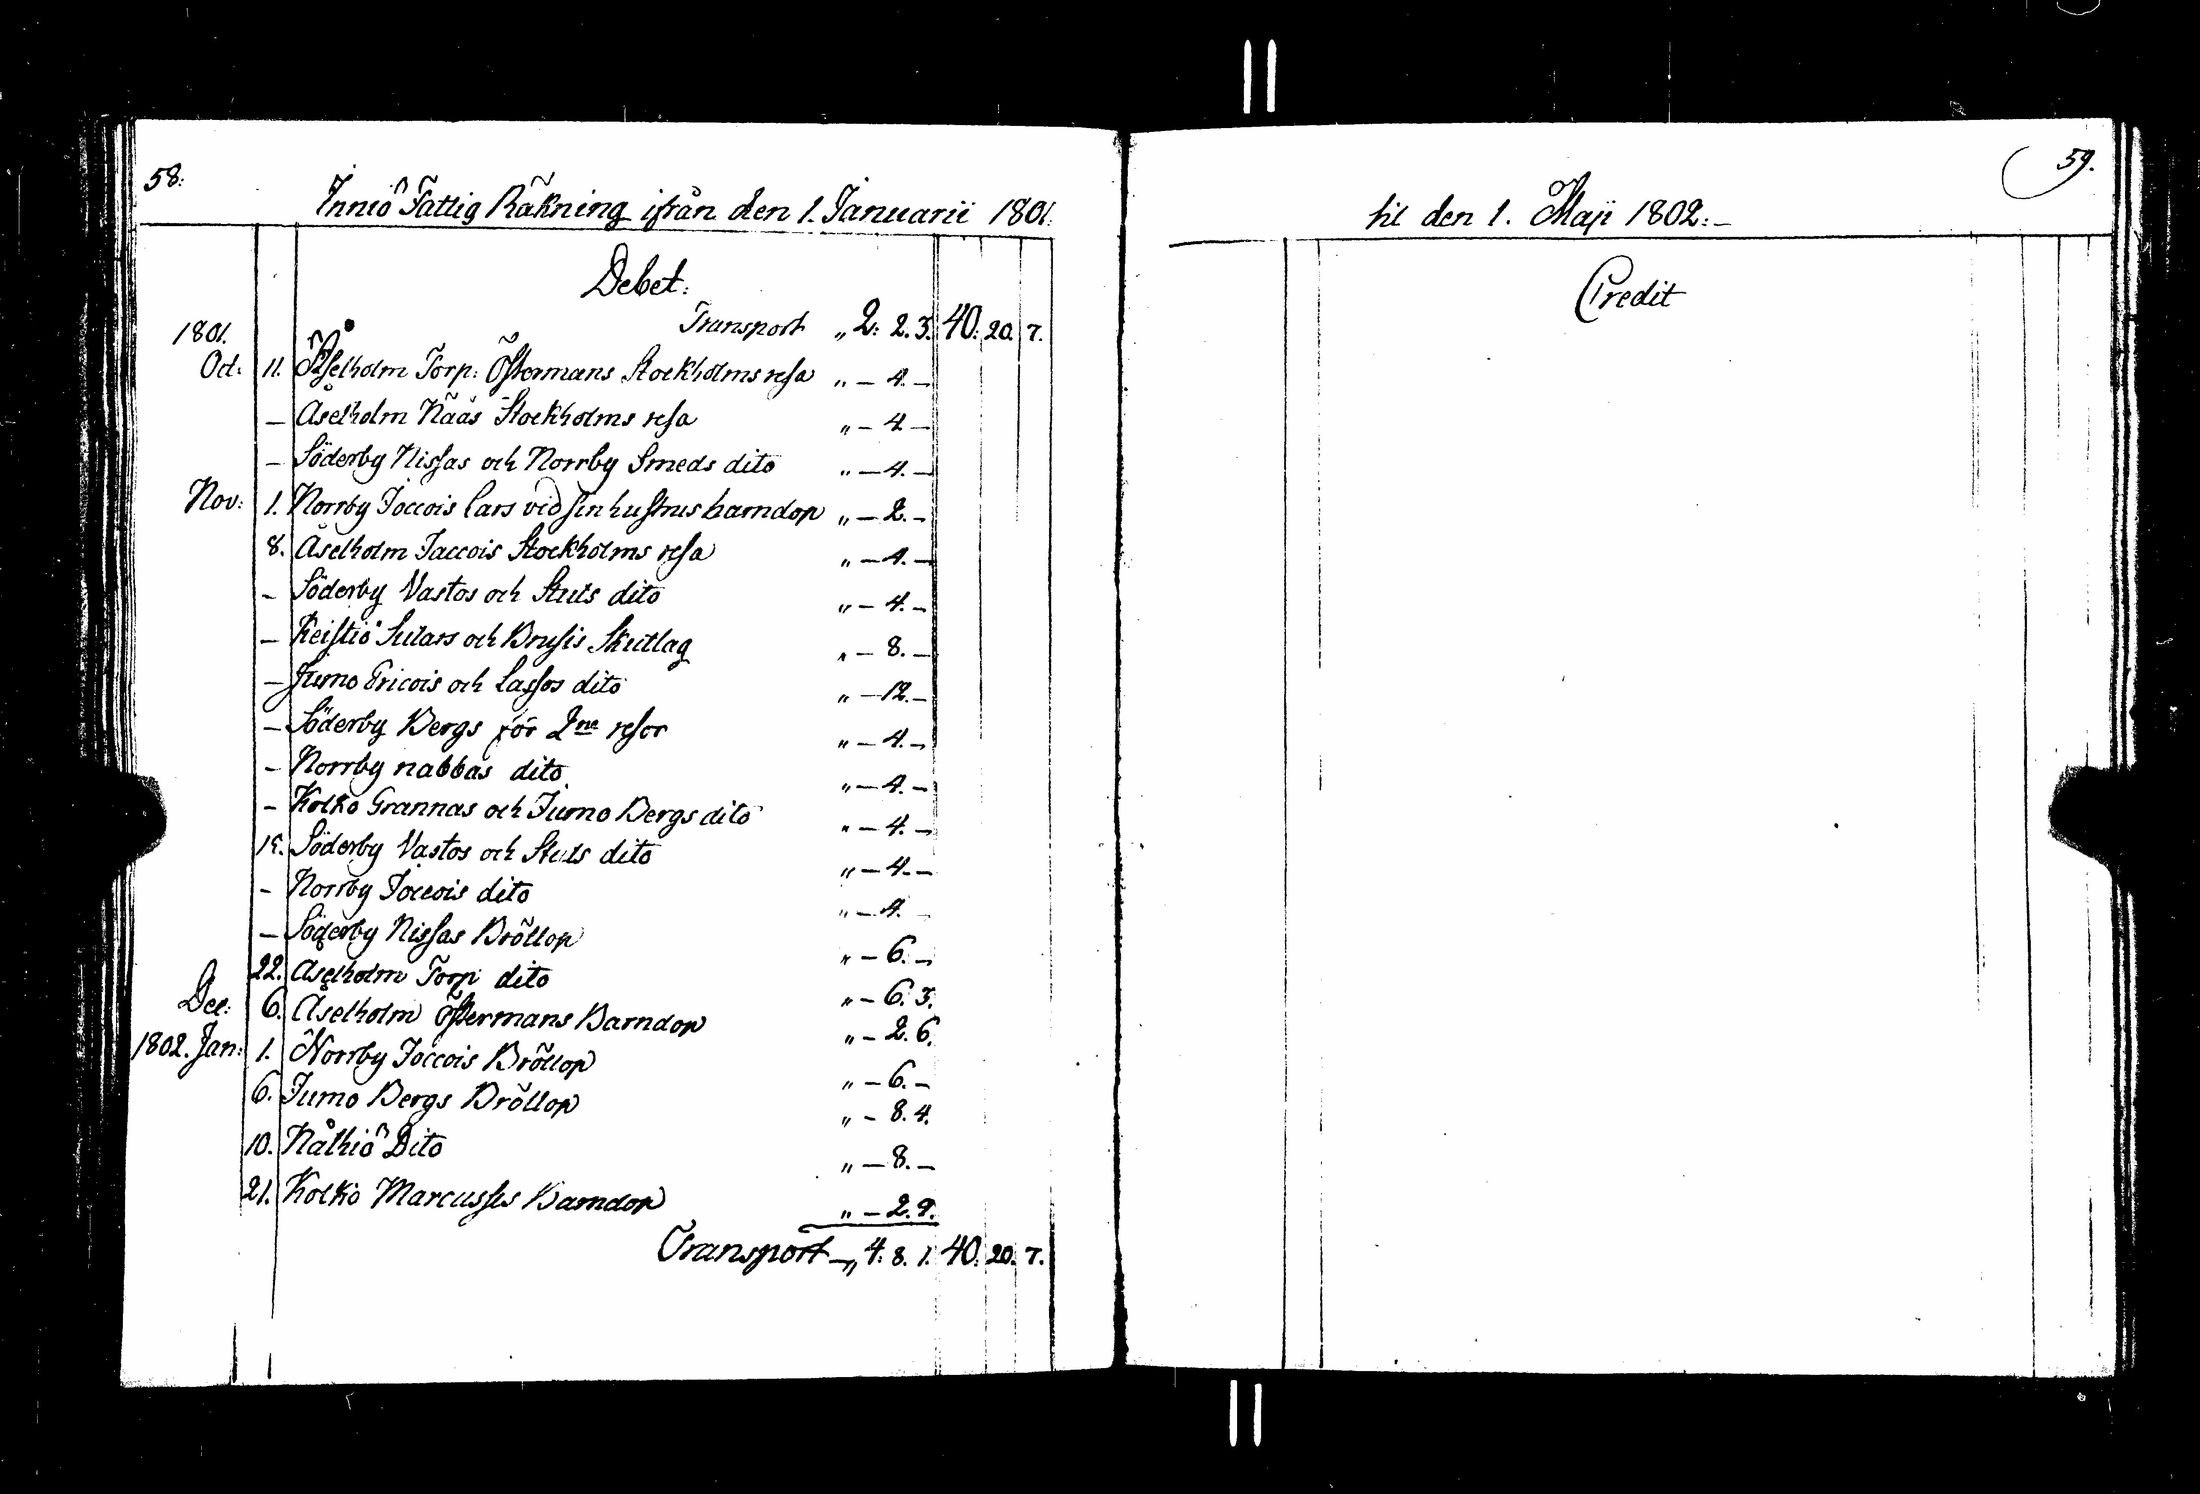 58:
Inniö Fattig Räkning ifrån den 1. Januarii 1801.
Debet:
Transport „ 2: 2. 3. 40: 20. 7.
1801.
Oct: 11. Åselholm Torp: Östermans Stockholms resa „ — 4. —
— Åselholm Nääs Stockholms resa „ — 4 —
— Söderby Nissas och Norrby Smeds dito „ — 4. —
Nov: 1. Norrby Joccois Lars vid sin hustrus barndop „ — 2. —
8. Åselholm Jaccois Stockholms resa „ — 4. —
— Söderby Vastos och Stuts dito „ — 4. —
— Keistiö Sutars och Brusis Skutlag „ — 8. —
— Jumo Ericois och Lassos dito „ — 12. —
— Söderby Bergs för 2ne resor „ — 4. —
— Norrby nabbas dito „ — 4. —
— Kolko Grannas och Jumo Bergs dito „ — 4. —
15. Söderby Vastos och Stuts dito „ — 4. —
— Norrby Joccois dito „ — 4. —
— Söderby Nissas Bröllop „ — 6. —
22. Åselholm Torp dito „ — 6. 3.
Dec: 6. Åselholm Östermans Barndop „ — 2. 6.
1802. Jan: 1. Norrby Joccois Bröllop „ — 6. —
6. Jumo Bergs Bröllop „ — 8. 4.
10. Nåthiö Dito „ — 8. —
21. Kolko Marcusses Barndop „ — 2. 9.
Transport — „ 4: 8. 1. 40: 20. 7.
59.
til den 1. Maji 1802: —
Credit